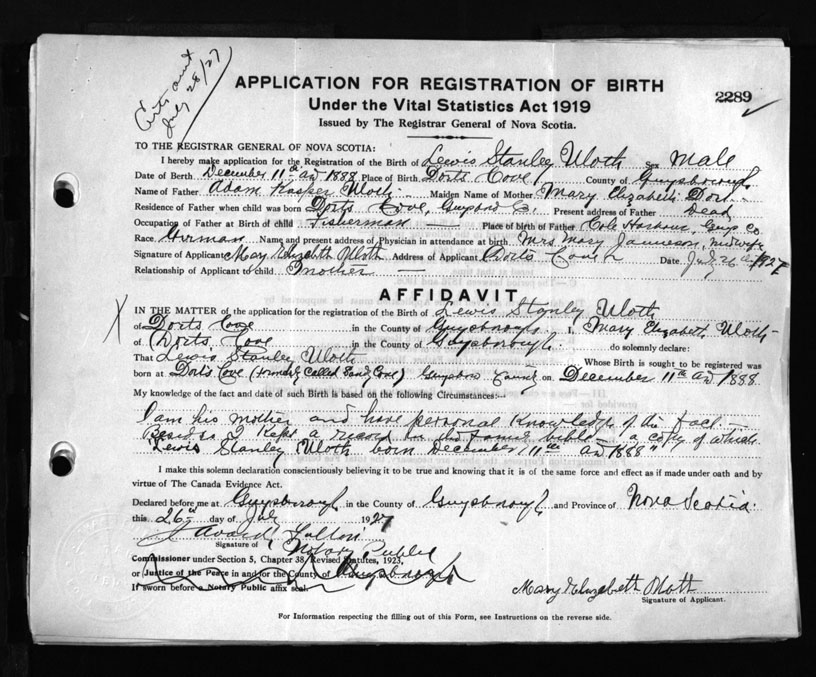 Cert. sent
July 28/27
APPLICATION FOR REGISTRATION OF BIRTH
2289
Under the Vital Statistics Act 1919
Issued by The Registrar General of Nova Scotia.
TO THE REGISTRAR GENERAL OF NOVA SCOTIA:
I hereby make application for the Registration of the Birth of Lewis Stanley Uloth Sex Male
Date of Birth December 11th AD 1888 Place of Birth Dorts Cove County of Guysborough
Name of Father Adam Kasper Uloth Maiden Name of Mother Mary Elizabeth Dort
Residence of Father when child was born Dorts Cove, Guysboro Co. Present address of Father Dead
Occupation of Father at Birth of child Fisherman Place of birth of Father Cole Harbour, Guys Co
Race German Name and present address of Physician in attendance at birth Mrs Mary Jamieson, midwife
Signature of Applicant Mary Elizabeth Uloth Address of Applicant Dorts Cove Date July 26th 1927
Relationship of Applicant to child Mother
AFFIDAVIT
IN THE MATTER of the application for the registration of the Birth of Lewis Stanley Uloth
of Dorts Cove in the County of Guysborough I, Mary Elizabeth Uloth
of Dorts Cove in the County of Guysborough do solemnly declare:
That Lewis Stanley Uloth Whose Birth is sought to be registered was
born at Dorts Cove (Formerly Called Sandy Cove) Guysboro County on December 11th AD 1888
My knowledge of the fact and date of such Birth is based on the following Circumstances:—
I am his mother and have personal knowledge of the fact.
Besides I kept a record in the family bible a copy of which
"Lewis Stanley Uloth born December 11th AD 1888"
I make this solemn declaration conscientiously believing it to be true and knowing that it is of the same force and effect as if made under oath and by
virtue of The Canada Evidence Act.
Declared before me at Guysborough in the County of Guysborough and Province of Nova Scotia
this 26th day of July 1927
Signature of
Notary Public
Commissioner under Section 5, Chapter 38, Revised Statutes, 1923,
or Justice of the Peace in and for the County of Guysborough
If sworn before a Notary Public affix seal.
Mary Elizabeth Uloth
Signature of Applicant.
For Information respecting the filling out of this Form, see Instructions on the reverse side.